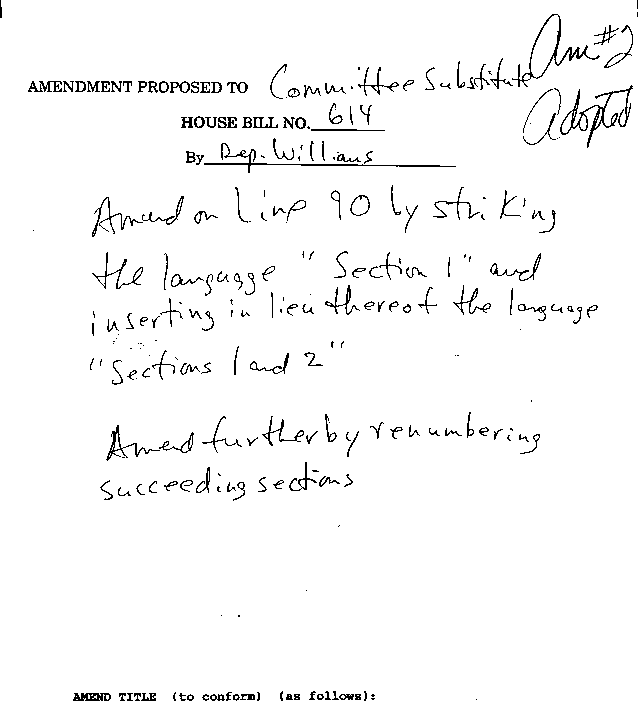 Am #2
Adopted
AMENDMENT PROPOSED TO Committee Substitute
HOUSE BILL NO. 614
By Rep. Williams
Amend on Line 90 by striking
the language "Section 1" and
inserting in lieu thereof the language
"Sections 1 and 2"
Amend further by renumbering
succeeding sections
AMEND TITLE (to conform) (as follows):